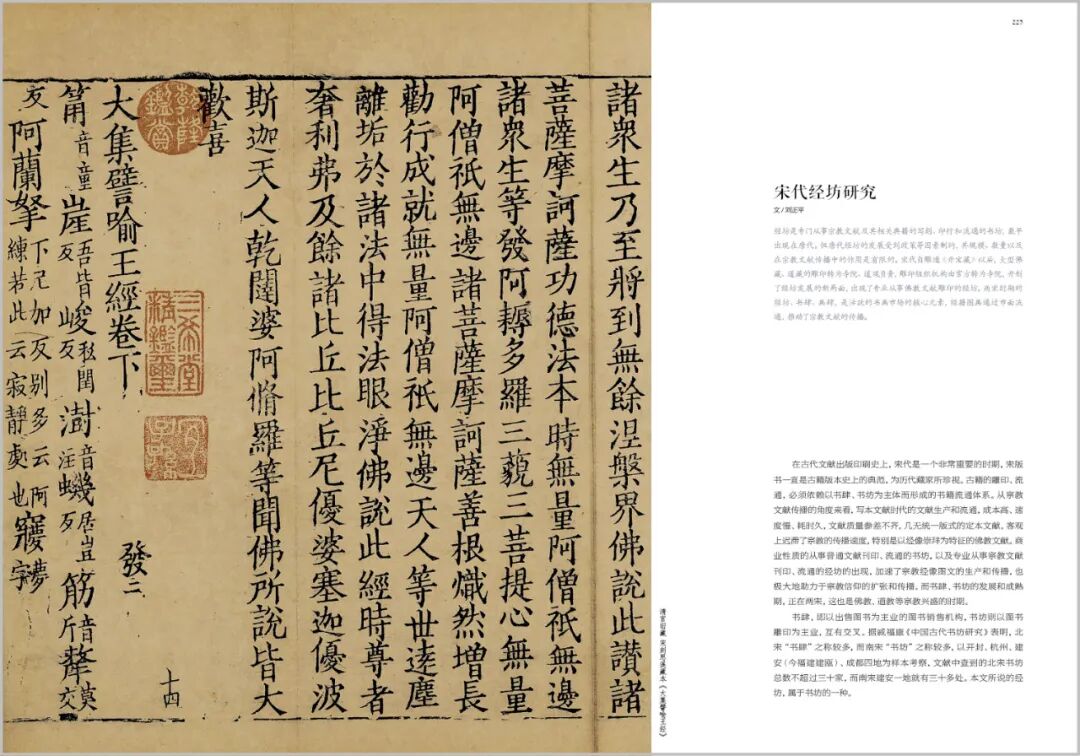 諸衆生乃至將到無餘涅槃界佛說此讚諸
菩薩摩訶薩功德法本時無量阿僧祇無邊
諸衆生等發阿耨多羅三藐三菩提心無量
阿僧祇無邊諸菩薩摩訶薩善根熾然增長
勸行成就無量阿僧祇無邊天人等世遠塵
離垢於諸法中得法眼淨佛說此經時尊者
奢利弗及餘諸比丘比丘尼優婆塞迦優波
斯迦天人乾闥婆阿脩羅等聞佛所說皆大
歡喜
十四
乾隆鑑賞
三希堂精鑑璽
宜子孫
大集譬喻王經卷下 發二
筩音童崖吾皆反峻私閏反澍音注蟣居豈反筋音斤犛莫交
反阿蘭拏下尼加反別多云阿練若此云寂靜處也
清宫旧藏 宋刻思溪藏本《大集譬喻王经》
225
宋代经坊研究
文 / 刘正平
经坊是专门从事宗教文献及其相关典籍的写刻、印行和流通的书坊，最早
出现在唐代，但唐代经坊的发展受到政策等因素制约，其规模、数量以及
在宗教文献传播中的作用是有限的。宋代自雕造《开宝藏》以后，大型佛
藏、道藏的雕印转为寺院、道观自主，雕印组织机构由官方转为寺院，开创
了经坊发展的新局面，出现了专业从事佛教文献雕印的经坊。两宋时期的
经坊、书肆、画肆，是活跃的书画市场的核心元素，经籍图画通过市面流
通，推动了宗教文献的传播。
在古代文献出版印刷史上，宋代是一个非常重要的时期，宋版
书一直是古籍版本史上的典范，为历代藏家所珍视。古籍的雕印、流
通，必须依赖以书肆、书坊为主体而形成的书籍流通体系。从宗教
文献传播的角度来看，写本文献时代的文献生产和流通，成本高、速
度慢、耗时久，文献质量参差不齐，几无统一版式的定本文献，客观
上迟滞了宗教的传播速度，特别是以经像崇拜为特征的佛教文献。商
业性质的从事普通文献刊印、流通的书坊，以及专业从事宗教文献
刊印、流通的经坊的出现，加速了宗教经像图文的生产和传播，也
极大地助力于宗教信仰的扩张和传播。而书肆、书坊的发展和成熟
期，正在两宋，这也是佛教、道教等宗教兴盛的时期。
书肆，即以出售图书为主业的图书销售机构，书坊则以图书
雕印为主业，互有交叉。据戚福康《中国古代书坊研究》表明，北
宋“书肆”之称较多，而南宋“书坊”之称较多，以开封、杭州、建
安（今福建建瓯）、成都四地为样本考察，文献中查到的北宋书坊
总数不超过三十家，而南宋建安一地就有三十多处。本文所说的经
坊，属于书坊的一种。